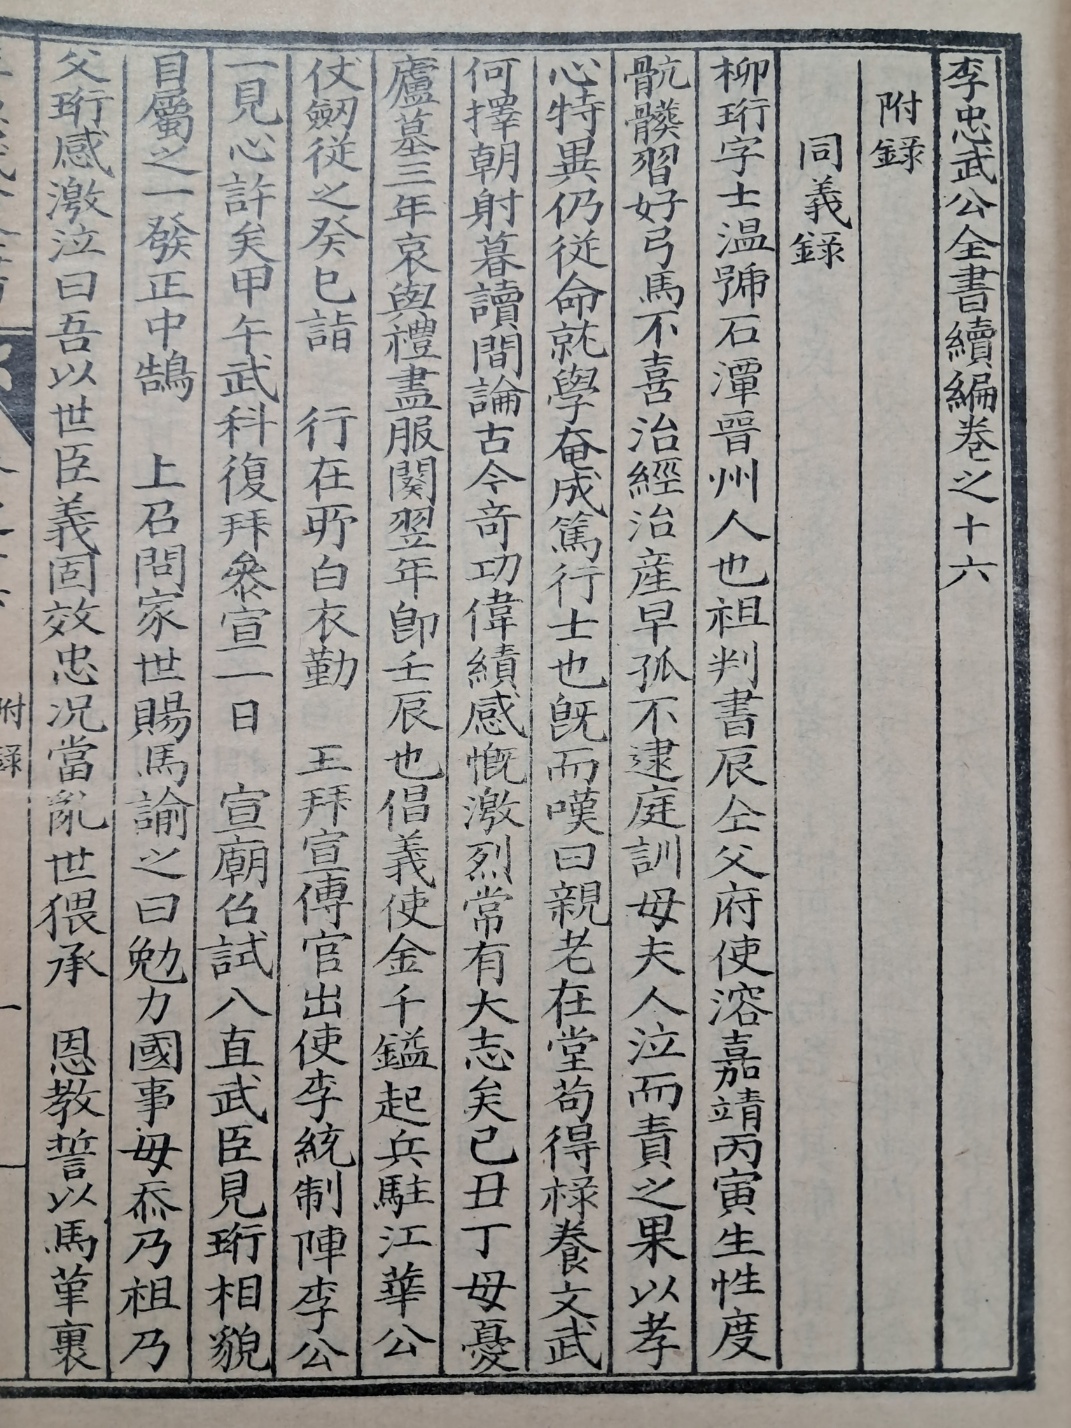 李忠武公全書續編卷之十六
附錄
同義錄
柳珩字士温號石潭晉州人也祖判書辰仝父府使溶嘉靖丙寅生性度
骯髒習好弓馬不喜治經治産早孤不逮庭訓母夫人泣而責之果以孝
心特異仍従命就學奄成篤行士也旣而嘆曰親老在堂苟得祿養文武
何擇朝射暮讀間論古今竒功偉績感慨激烈常有大志矣己丑丁母憂
廬墓三年哀與禮盡服闋翌年卽壬辰也倡義使金千鎰起兵駐江華公
仗劒従之癸巳詣 行在所白衣勤 王拜宣傳官出使李統制陣李公
一見心許矣甲午武科復拜叅宣一日 宣廟召試八直武臣見珩相貌
目屬之一發正中鵠 上召問家世賜馬諭之曰勉力國事毋忝乃祖乃
父珩感激泣曰吾以世臣義固效忠况當亂世猥承 恩教誓以馬革裏
附錄
一